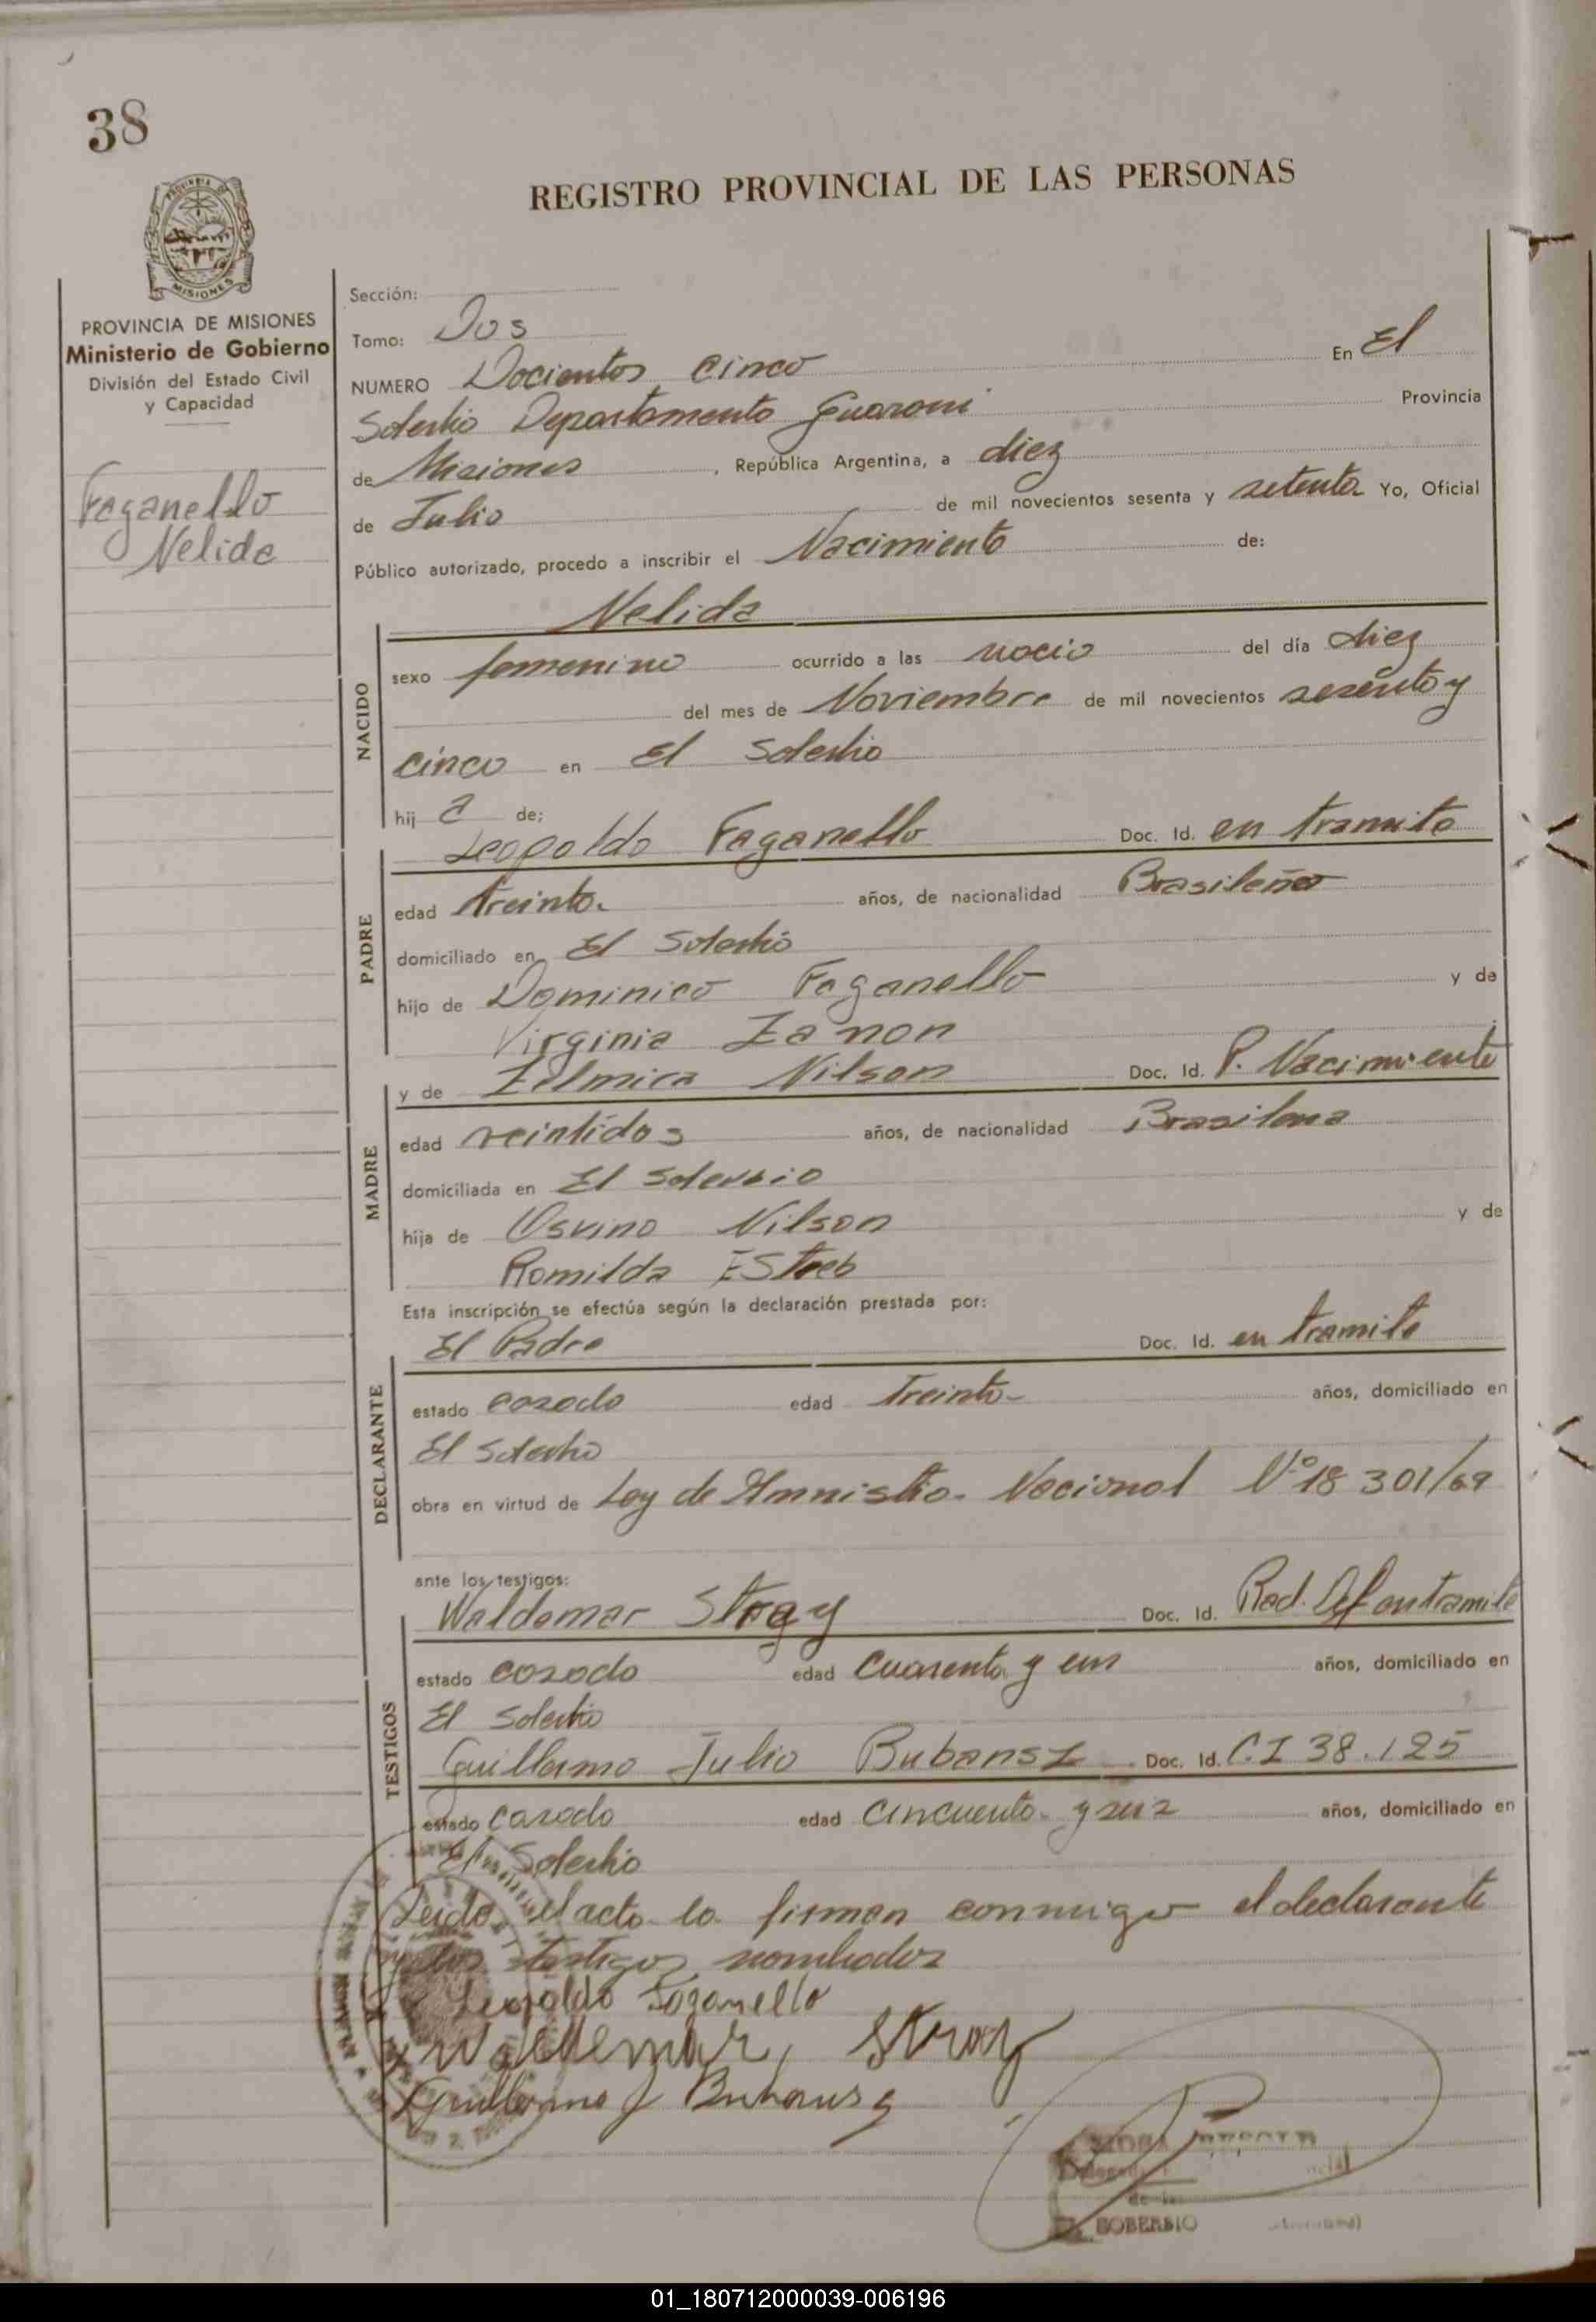 38
REGISTRO PROVINCIAL DE LAS PERSONAS
PROVINCIA DE
MISIONES
PROVINCIA DE MISIONES
Ministerio de Gobierno
División del Estado Civil
y Capacidad
Faganello
Nelida
Sección:
Tomo: Dos
NUMERO Docientos cinco En El
Soberbio Departamento Guarani Provincia
de Misiones, República Argentina, a diez
de Julio de mil novecientos sesenta y setenta Yo, Oficial
Público autorizado, procedo a inscribir el Nacimiento de:
Nelida
NACIDO
sexo femenino ocurrido a las del día diez
del mes de Noviembre de mil novecientos sesenta y
cinco en El Soberbio
hij a de;
Leopoldo Faganello Doc. Id. en tramite
PADRE
edad treinta años, de nacionalidad Brasileña
domiciliado en El Soberbio
hijo de Dominico Faganello y de
Virginia Zanon
y de Zelmira Nilson Doc. Id. P. Nacimiento
MADRE
edad veintidos años, de nacionalidad Brasilena
domiciliada en El Soberbio
hija de Osvino Nilson y de
Romilda
Esta inscripción se efectúa según la declaración prestada por:
El Padre Doc. Id. en tramite
DECLARANTE
estado casado edad Treinta años, domiciliado en
El Soberbio
obra en virtud de Ley de Amnistia Nacional Nº 18 301/69
ante los testigos:
Waldemar Stragy Doc. Id. Rad. en tramite
TESTIGOS
estado casado edad Cuarenta y un años, domiciliado en
El Soberbio
Guillermo Julio Bubansz Doc. Id. C.I 38.125
estado casado edad cincuenta y seiz años, domiciliado en
El Soberbio
Leido el acto lo firman conmigo el declarante
y los testigos nombrados
Leopoldo Faganello
Waldemar
Guillermo J Buhansz
SOBERBIO
01_180712000039-006196